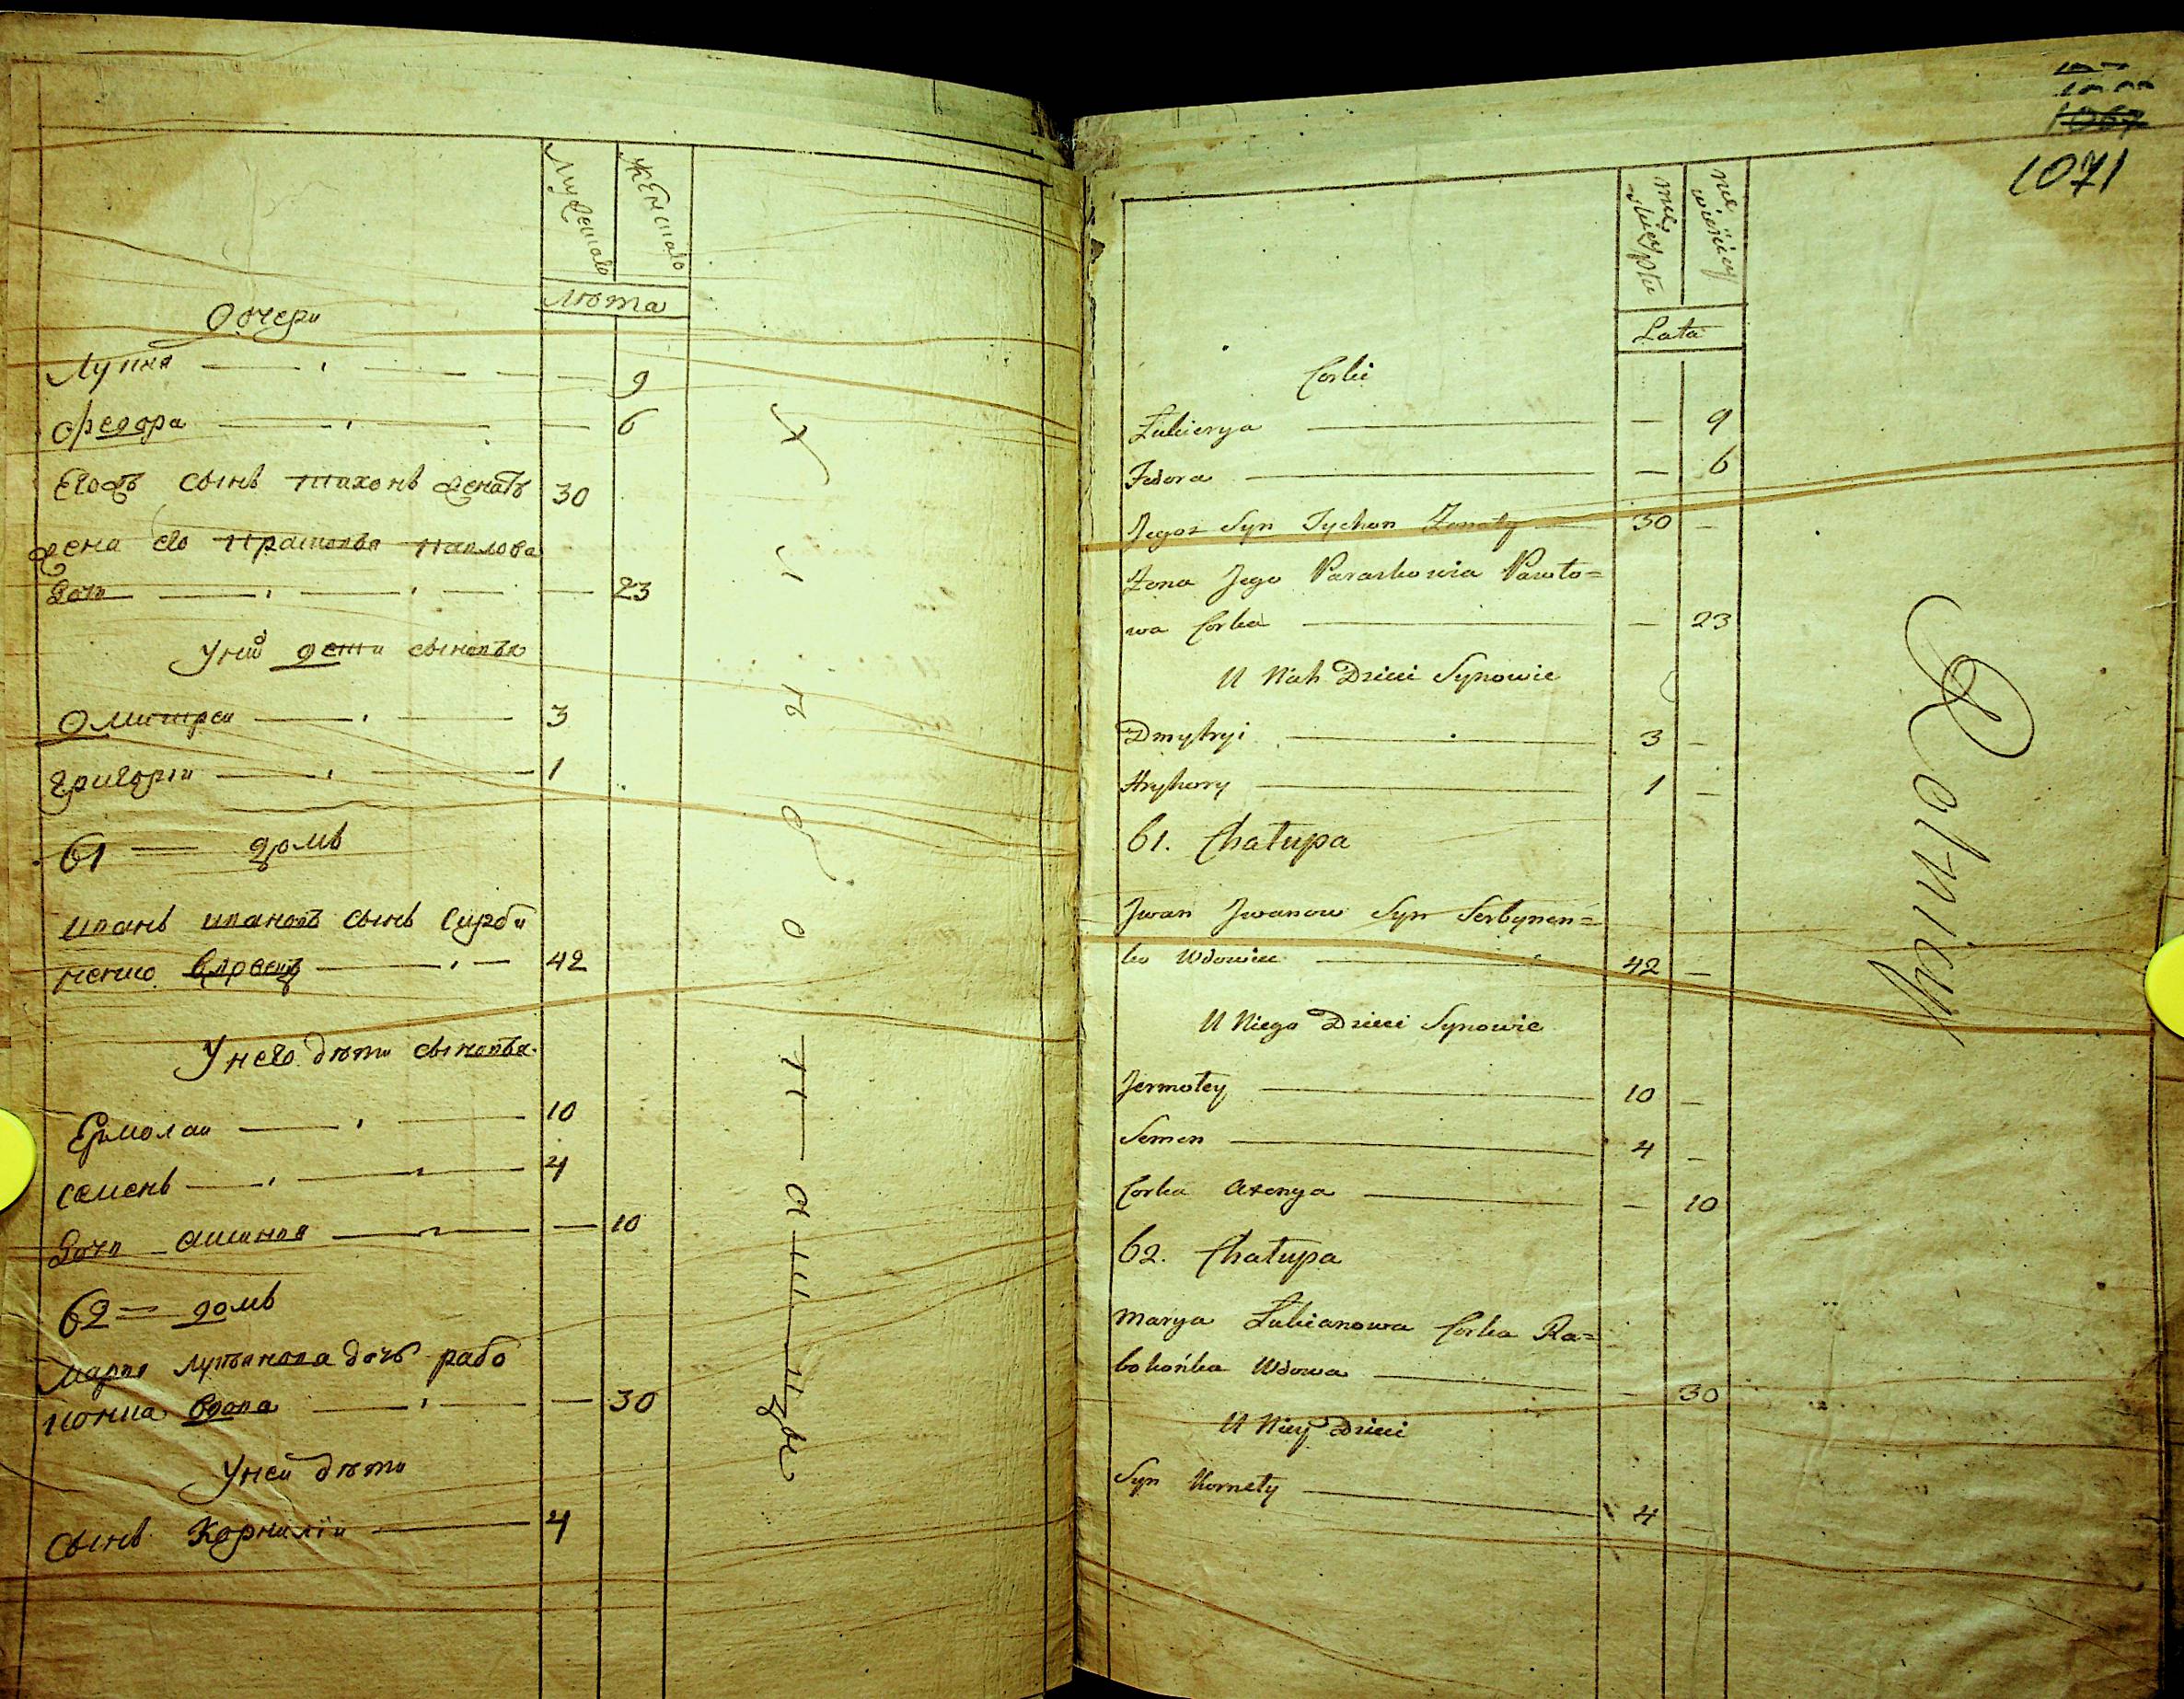 Мужеска
Женска
Лѣта
Дочери
Лукия 9
Федора 6
Егожъ сынъ Тихонъ женатъ 30
жена его Прасковья Павлова
дочь 23
У них дети сыновья
Дмитреи 3
Григории 1
61 домъ
Иванъ Ивановъ сынъ Сирби
ненко вдовецъ 42
У него дѣти сыновья
Ермолаи 10
Семенъ 4
Дочь 10
62 = домъ
Мария Лукянова дочь Рабо
конка вдова 30
У неи дѣти
Сынъ Корнилiи 4
Хлѣбопашцы
1067
1071
męskiey płci
niewieściey
Lata
Corki
Łukierya — 9
Fedora — 6
Jegoż Syn Tychon Żonaty 30 —
Żona Jego Paraskowia Pawło=
wa Corka — 23
U Nich Dzieci Synowie
Dmytryi 3 —
Hryhory 1 —
61. Chałupa
Jwan Jwanow Syn Serbynen=
ko Wdowiec 42 —
U Niego Dzieci Synowie
Jermołey 10 —
Semen 4 —
Corka Axenya — 10
62. Chałupa
Marya Łukianowa Corka Ra=
bokońka Wdowa — 30
U Niey Dzieci
Syn Korneły 4 —
Rolnicy